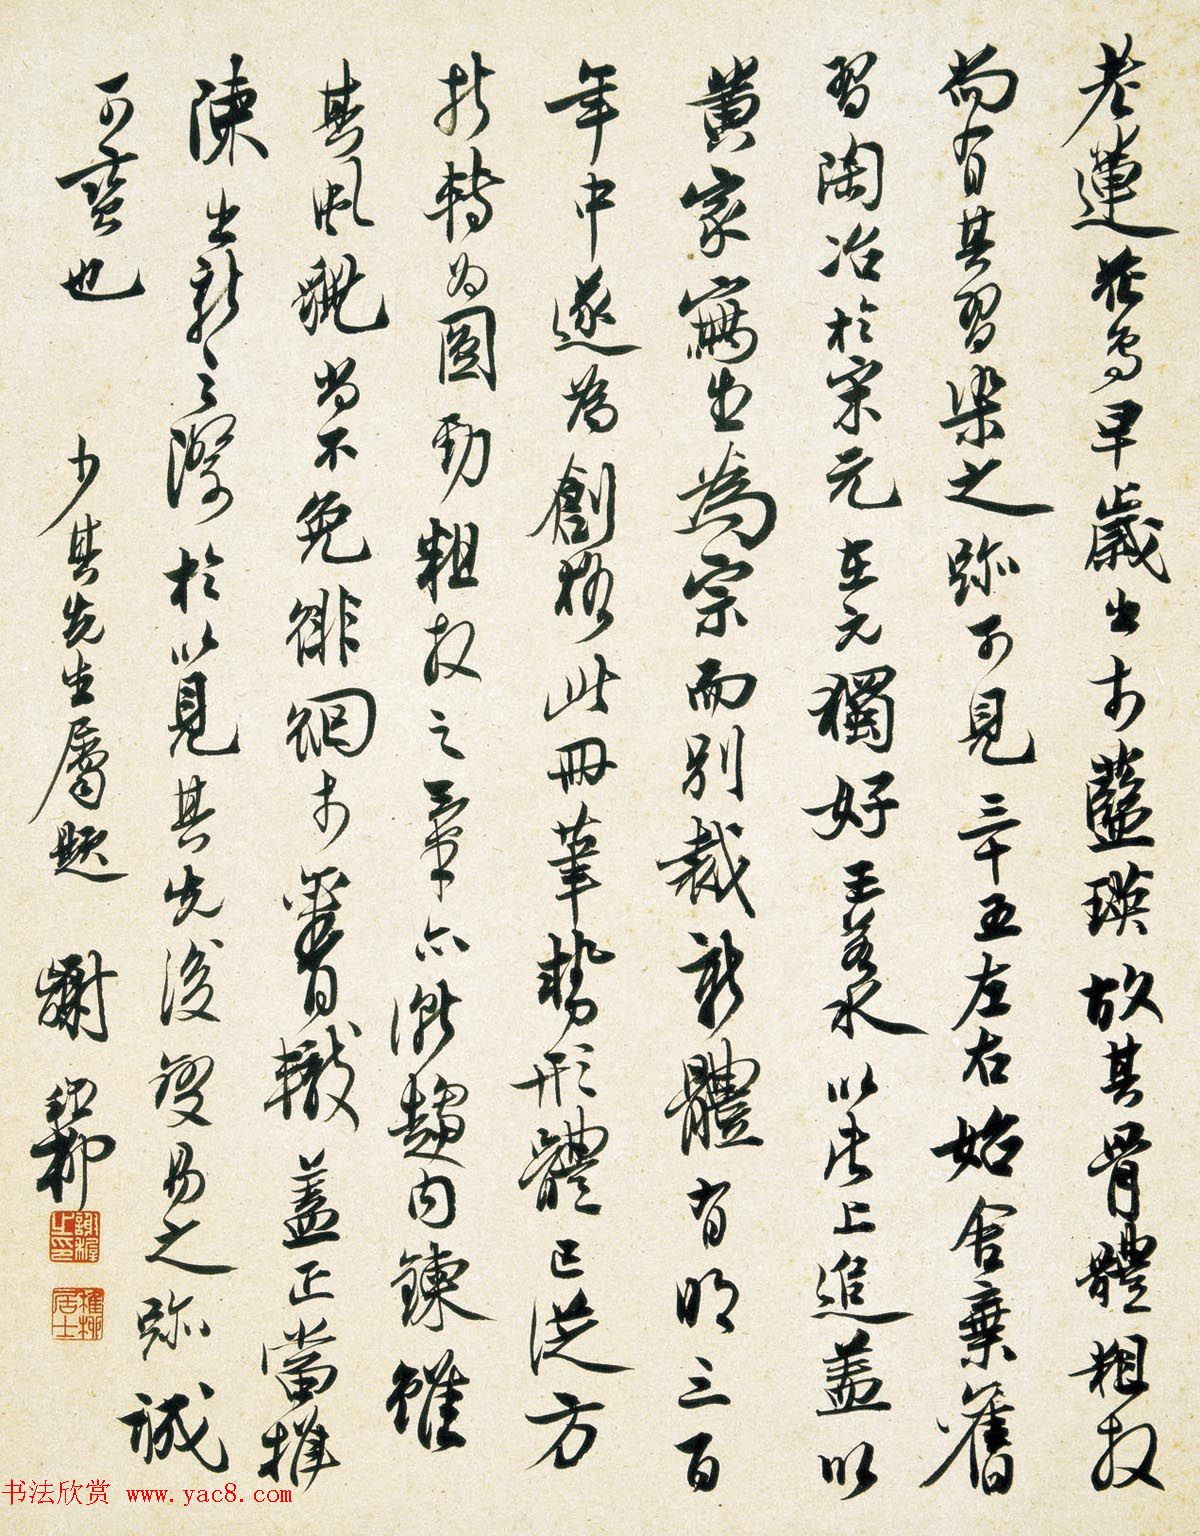 老蓮花鳥早歲出於藍瑛故其骨體粗放
尚有其習染之跡可見三十五左右始舍棄舊
習陶冶於宋元在元獨好王若水以此上追蓋以
黃家寫生為宗而別裁新體有明三百
年中遂為創格此冊筆勢形體已從方
折轉為圓勁粗放之筆亦漸趨內鍊雖
其風貌尚不免徘徊於舊轍蓋正當推
陳出新之際於以見其先後變易之跡誠
可寶也
少其先生屬題 謝稚柳
謝稚之印
稚柳居士
书法欣赏 www.yac8.com